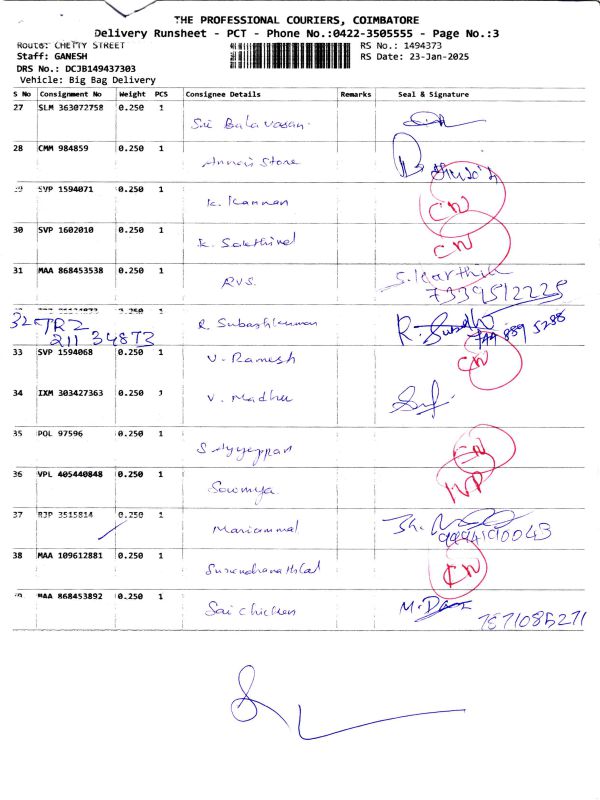 THE PROFESSIONAL COURIERS, COIMBATORE
Delivery Runsheet - PCT - Phone No.:0422-3505555 - Page No.:3
Route: CHETTY STREET
RS No.: 1494373
Staff: GANESH
RS Date: 23-Jan-2025
DRS No.: DCJB149437303
Vehicle: Big Bag Delivery
S No Consignment No Weight PCS Consignee Details Remarks Seal & Signature
27 SLM 363072758 0.250 1 Sri Balavasan
28 CMM 984859 0.250 1 Annai Store
29 SVP 1594071 0.250 1 K. Kannan CN
30 SVP 1602010 0.250 1 K. Sakthivel CN
31 MAA 868453538 0.250 1 RVS. S. Karthik
7339512225
32 TRZ 0.250 1 R. Subashkumar R.
211 34873 744 889 5288
33 SVP 1594068 0.250 1 V. Ramesh CN
34 IXM 303427363 0.250 1 V. Madhu
35 POL 97596 0.250 1 S Ayyappan CN
36 VPL 405440848 0.250 1 Sowmya
37 RJP 3515814 0.250 1 Mariammal
38 MAA 109612881 0.250 1 CN
39 MAA 868453892 0.250 1 Sai Chicken M.
7671085271